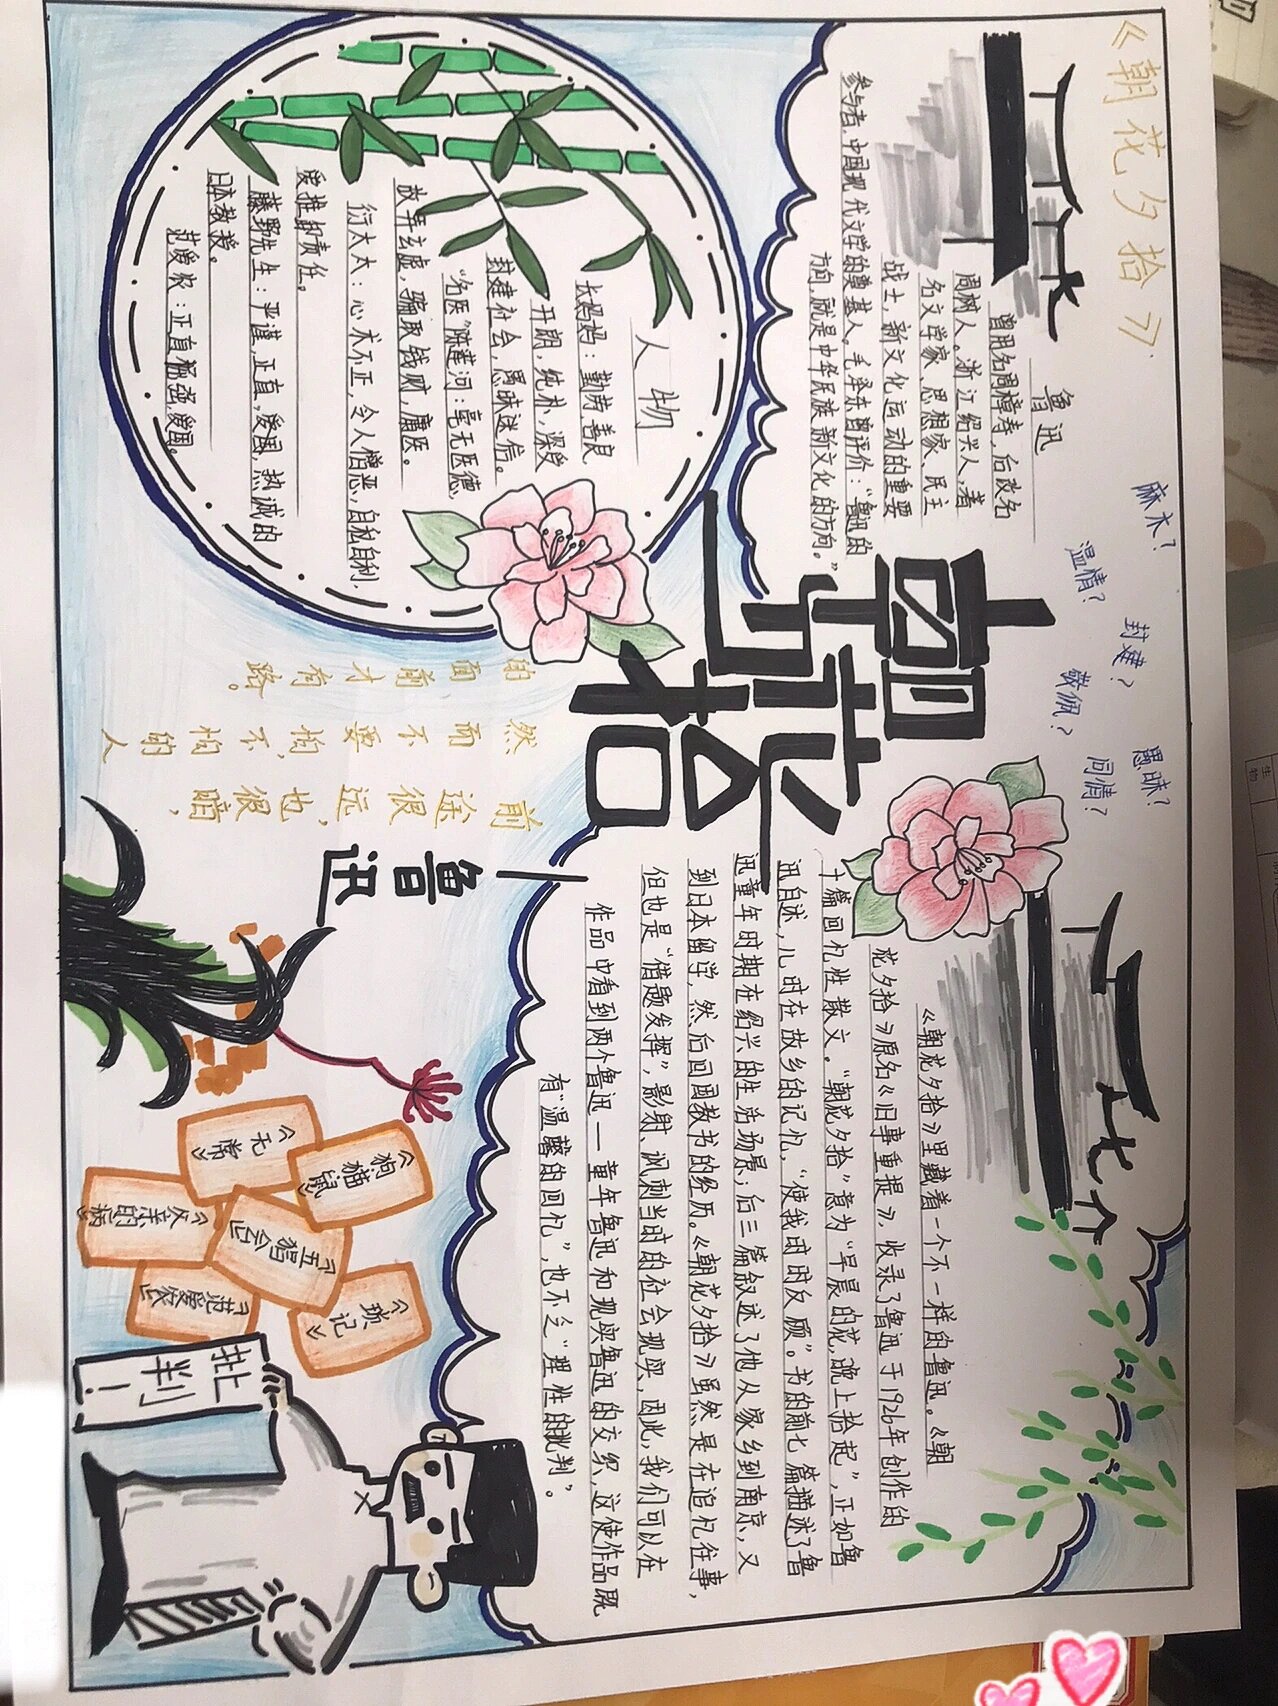 《朝花夕拾》
麻木?
温情?
封建?
敬佩?
愚昧?
同情?
鲁迅
曾用名周樟寿,后改名
周树人。浙江绍兴人,著
名文学家、思想家、民主
战士,新文化运动的重要
参与者,中国现代文学的奠基人。毛泽东曾评价:“鲁迅的
方向,就是中华民族新文化的方向。”
朝花
夕拾
人物
长妈妈:勤劳善良
开朗,纯朴,深受
封建社会,愚昧迷信。
“名医”陈莲河:毫无医德,
故弄玄虚,骗取钱财,庸医。
衍太太:心术不正,令人憎恶,自私自利,
爱推卸责任。
藤野先生:严谨,正直,爱国,热诚的
日本教授。
范爱农:正直倔强爱国。
简介
《朝花夕拾》里藏着一个不一样的鲁迅。《朝
花夕拾》原名《旧事重提》,收录了鲁迅于1926年创作的
十篇回忆性散文。“朝花夕拾”意为“早晨的花,晚上拾起”,正如鲁
迅自述,儿时在故乡的记忆,“使我时时反顾”。书的前七篇描述了鲁
迅童年时期在绍兴的生活场景;后三篇叙述了他从家乡到南京,又
到日本留学,然后回国教书的经历。《朝花夕拾》虽然是在追忆往事,
但也是“借题发挥”,影射、讽刺当时的社会现实,因此,我们可以在
作品中看到两个鲁迅—童年鲁迅和现实鲁迅的交织,这使作品既
有“温馨的回忆”,也不乏“理性的批判”。
前途很远,也很暗,
然而不要怕,不怕的人
的面前才有路。
—鲁迅
《无常》
《狗猫鼠》
《父亲的病》
《五猖会》
《范爱农》
《琐记》
批判!